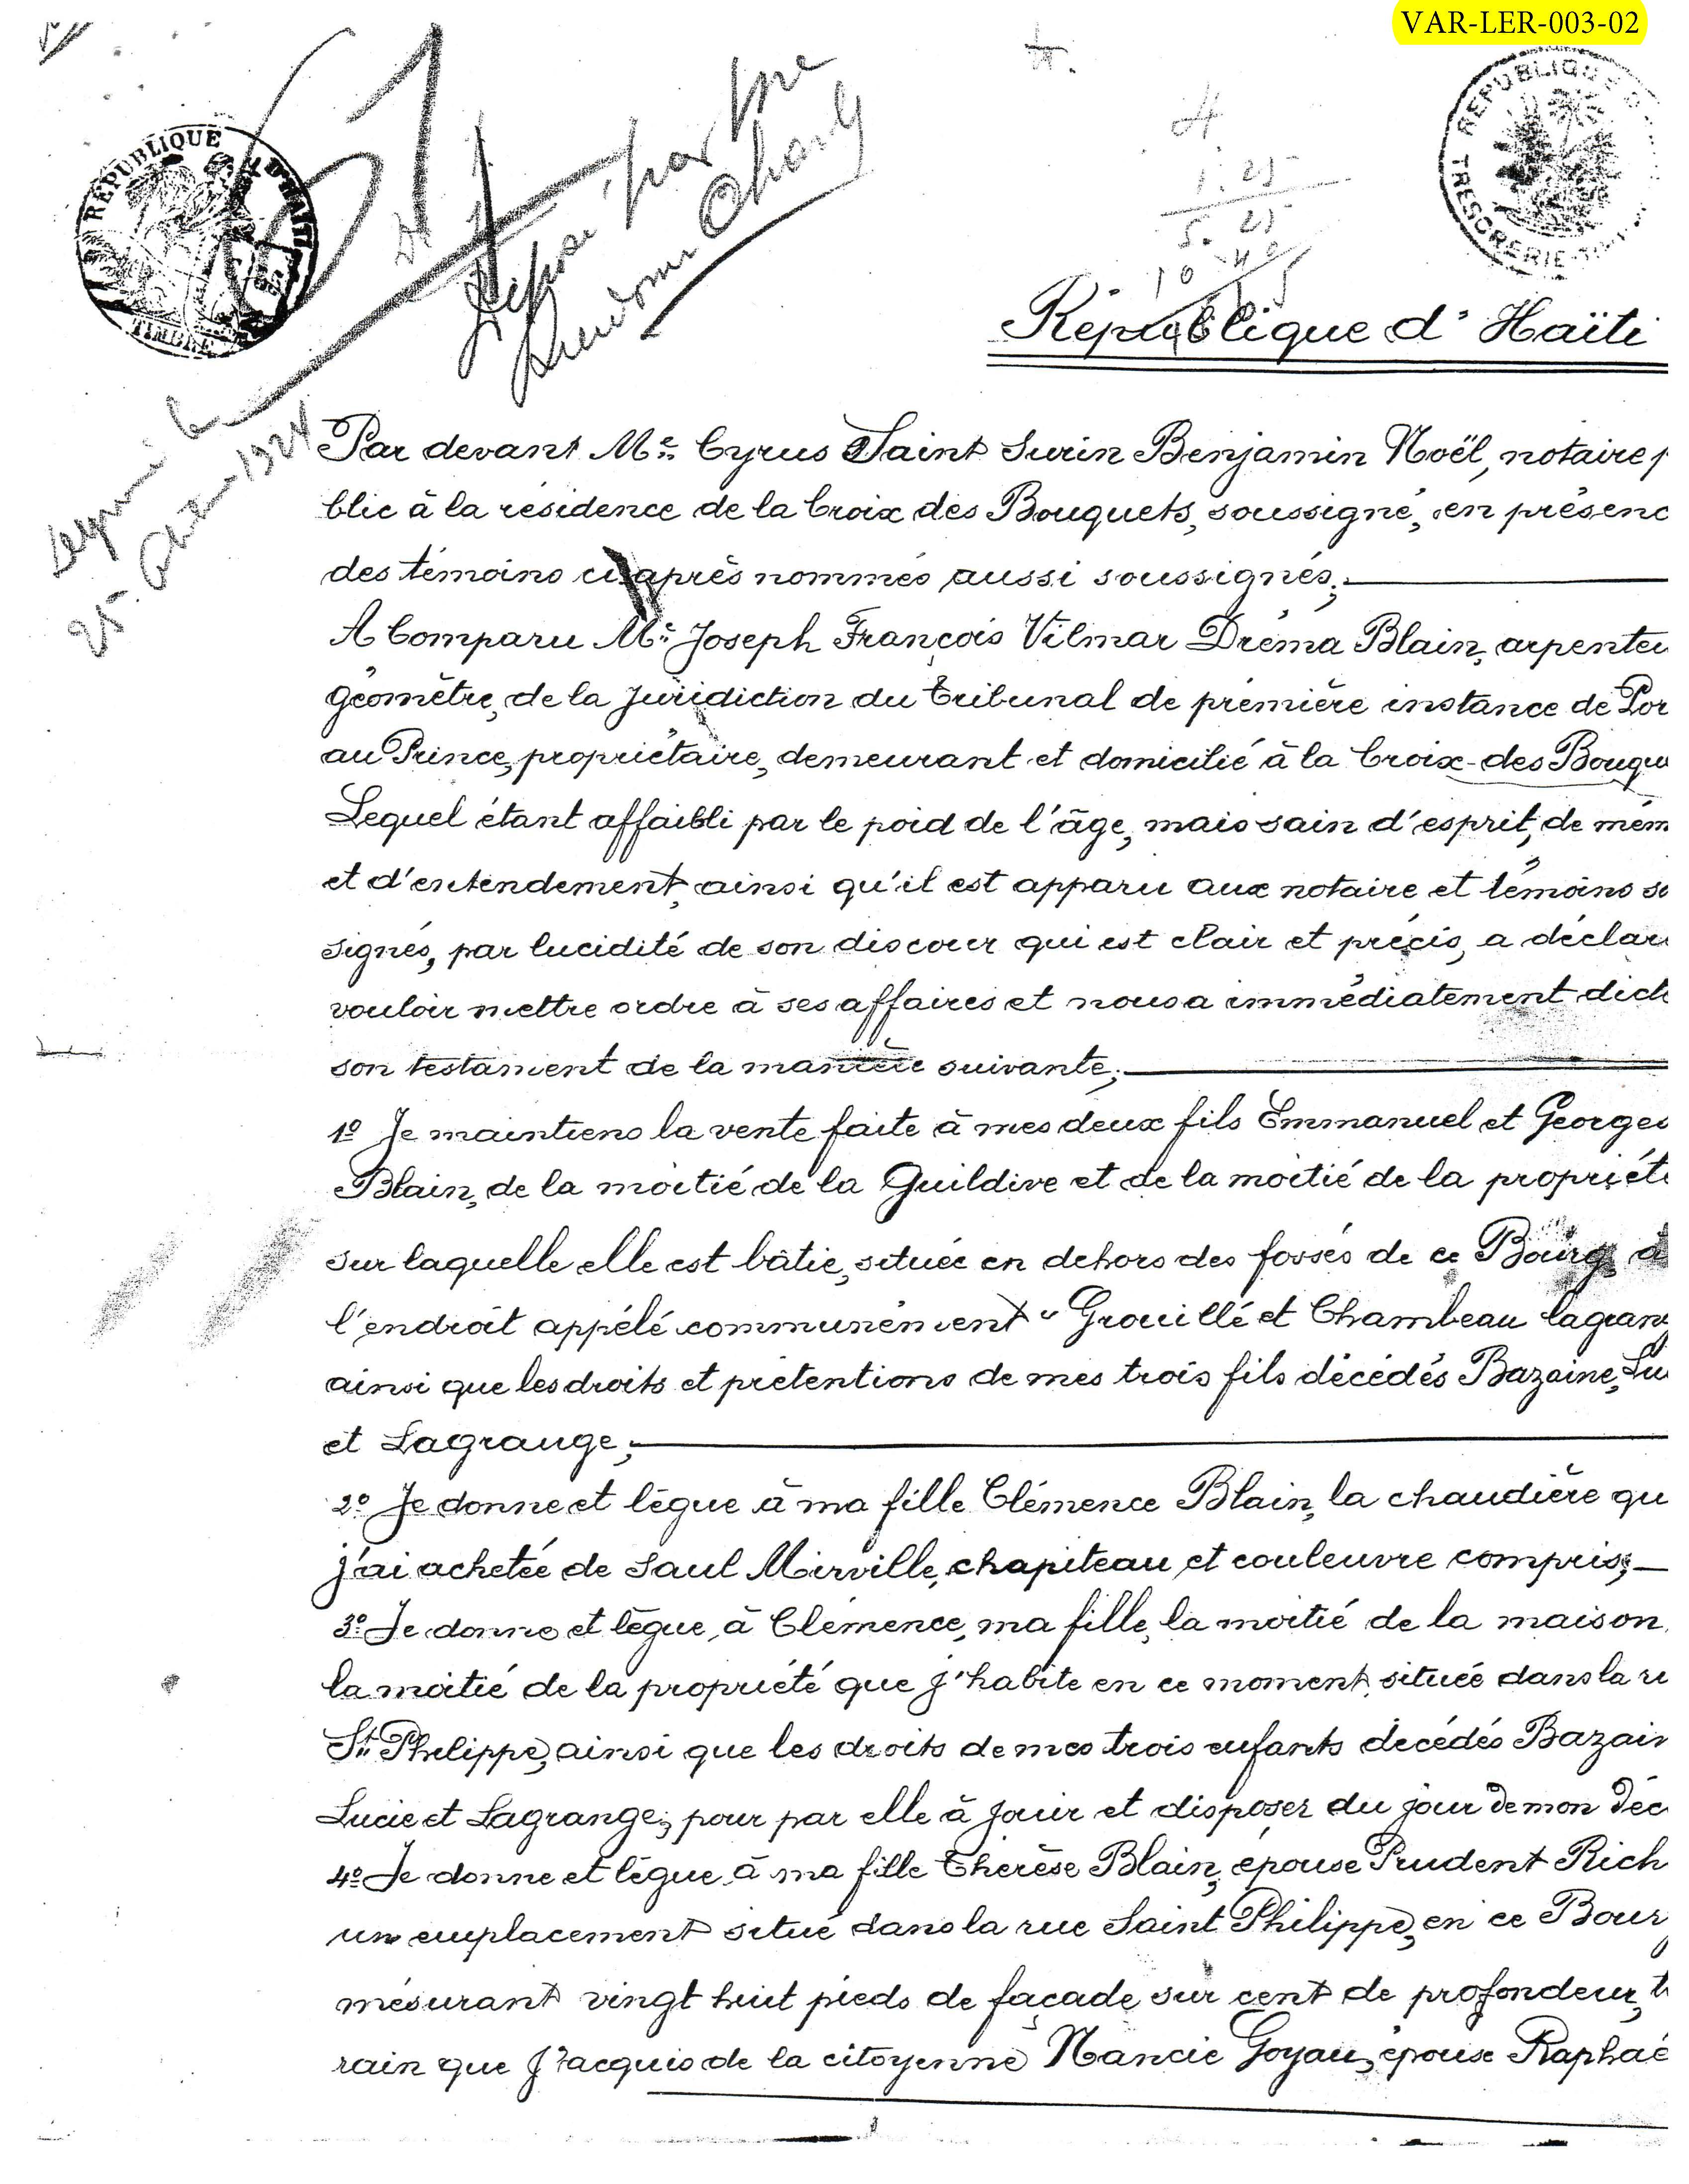 VAR-LER-003-02
RÉPUBLIQUE D'HAÏTI
TIMBRE
REPUBLIQUE
TRESORERIE
4
1.25
5.25
Déposé par Me
République d'Haïti
25 1924
Par devant Me. Cyrus Saint Surin Benjamin Noël, notaire p
blic à la résidence de la Croix des Bouquets, soussigné, en présenc
des témoins ci après nommés aussi soussignés;
A Comparu Mr. Joseph François Vilmar Dréma Blain, arpenteu
géomètre, de la juridiction du tribunal de première instance de Por
au Prince, propriétaire, demeurant et domicilié à la Croix-des Bouqu
Lequel étant affaibli par le poid de l'âge, mais sain d'esprit, de mém
et d'entendement, ainsi qu'il est apparu aux notaire et témoins so
signés, par lucidité de son discour qui est clair et précis, a déclar
vouloir mettre ordre à ses affaires et nous a immédiatement dict
son testament de la manière suivante;
1º Je maintiens la vente faite à mes deux fils Emmanuel et Georges
Blain, de la moitié de la Guildive et de la moitié de la propriété
sur laquelle elle est bâtie, située en dehors des fossés de ce Bourg à
l'endroit appélé communément "Grouillé et Chambeau lagrang
ainsi que les droits et prétentions de mes trois fils décédés Bazaine, Lu
et Lagrange;
2º Je donne et lègue à ma fille Clémence Blain, la chaudière qu
j'ai achetée de Saul Mirville, chapiteau et couleuvre compris;
3º Je donne et lègue, à Clémence, ma fille, la moitié de la maison
la moitié de la propriété que j'habite en ce moment, située dans la r
St. Philippe, ainsi que les droits de mes trois enfants décédés Bazain
Lucie et Lagrange; pour par elle à jouir et disposer du jour de mon déc
4º Je donne et lègue à ma fille Thérèse Blain, épouse Prudent Rich
un emplacement situé dans la rue Saint Philippe, en ce Bour
mésurant vingt huit pieds de façade sur cent de profondeur, t
rain que j'acquis de la citoyenne Nancie Goyau, épouse Raphaé